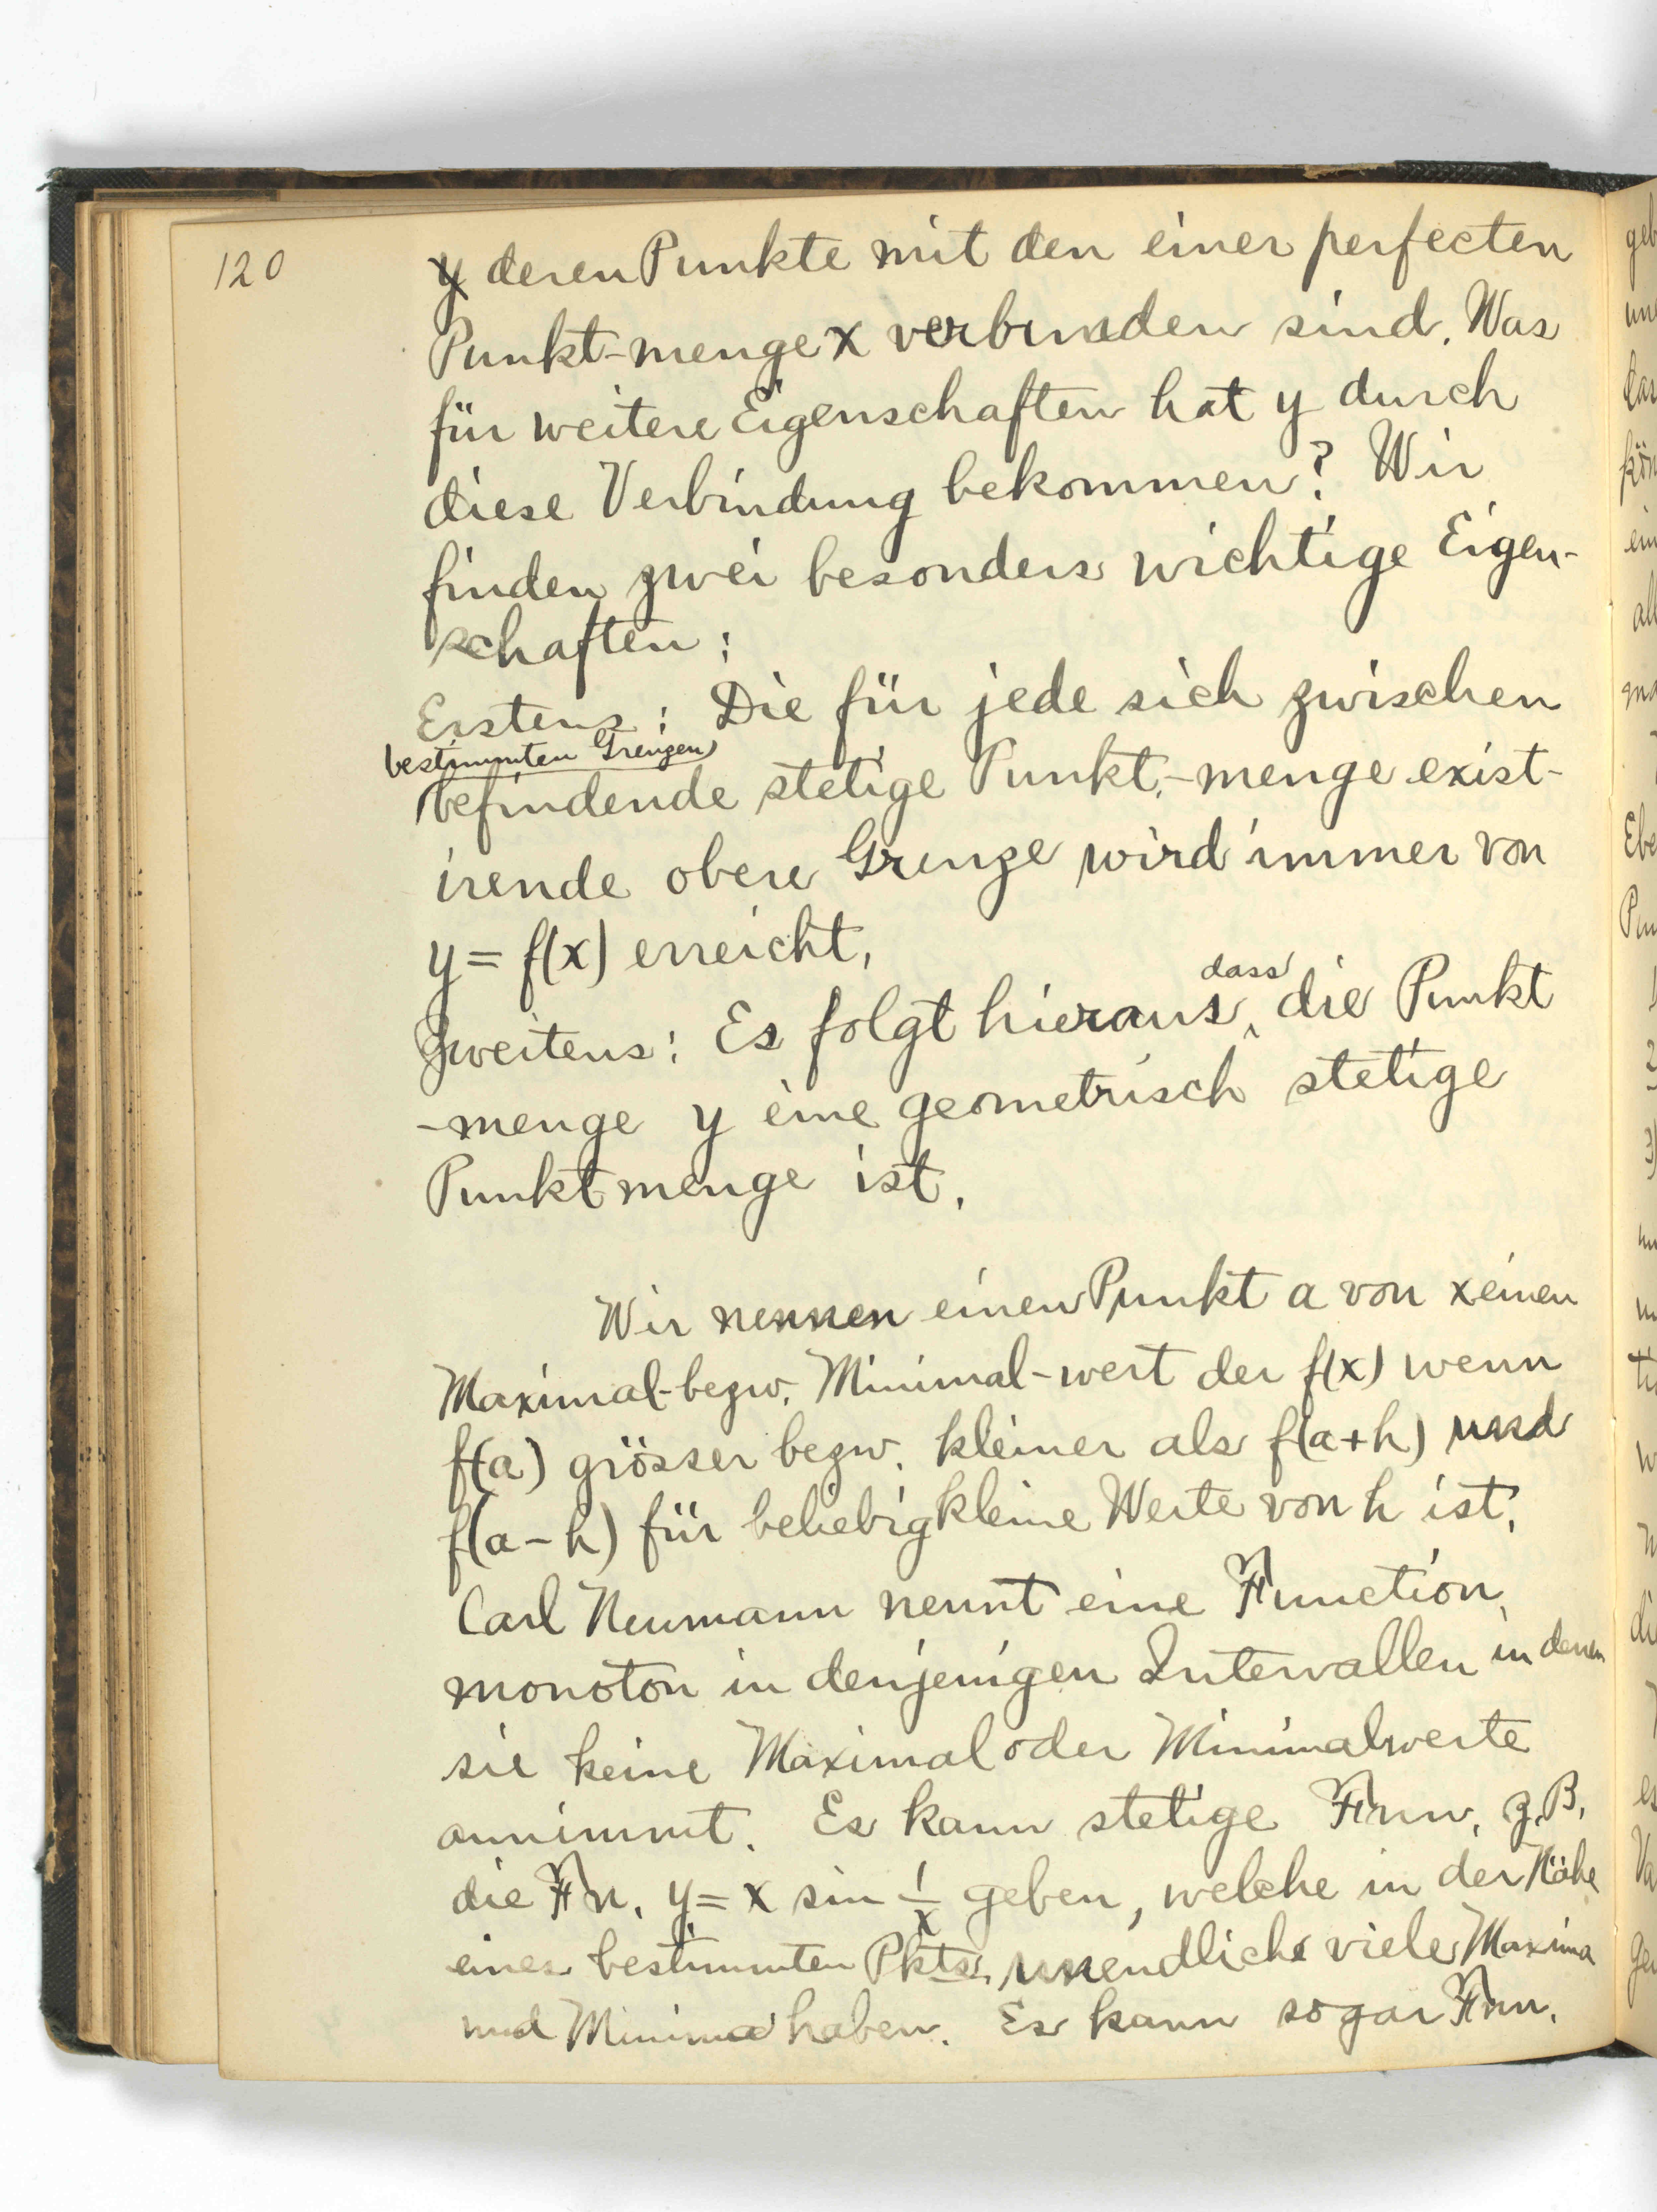 120
y deren Punkte mit den einer perfecten
Punkt-menge x verbunden sind. Was
für weitere Eigenschaften hat y durch
diese Verbindung bekommen? Wir
finden zwei besonders wichtige Eigen-
schaften:
Erstens: Die für jede sich zwischen
bestimmten Grenzen
befindende stetige Punkt-menge exist-
irende obere Grenze wird immer von
y = f(x) erreicht.
dass
Zweitens: Es folgt hieraus, die Punkt
-menge y eine geometrisch stetige
Punktmenge ist.
Wir nennen einen Punkt a von x einen
Maximal-bezw. Minimal-wert der f(x) wenn
f(a) grösser bezw. kleiner als f(a+h) und
f(a-h) für beliebig kleine Werte von h ist.
Carl Neumann nennt eine Function,
monoton in denjenigen Intervallen in denen
sie keine Maximal oder Minimalwerte
annimmt. Es kann stetige Fnn. z.B.
die Fn. y = x sin 1/x geben, welche in der Nähe
eines bestimmten Pkts. unendlich viele Maxima
und Minima haben. Es kann sogar Fnn.